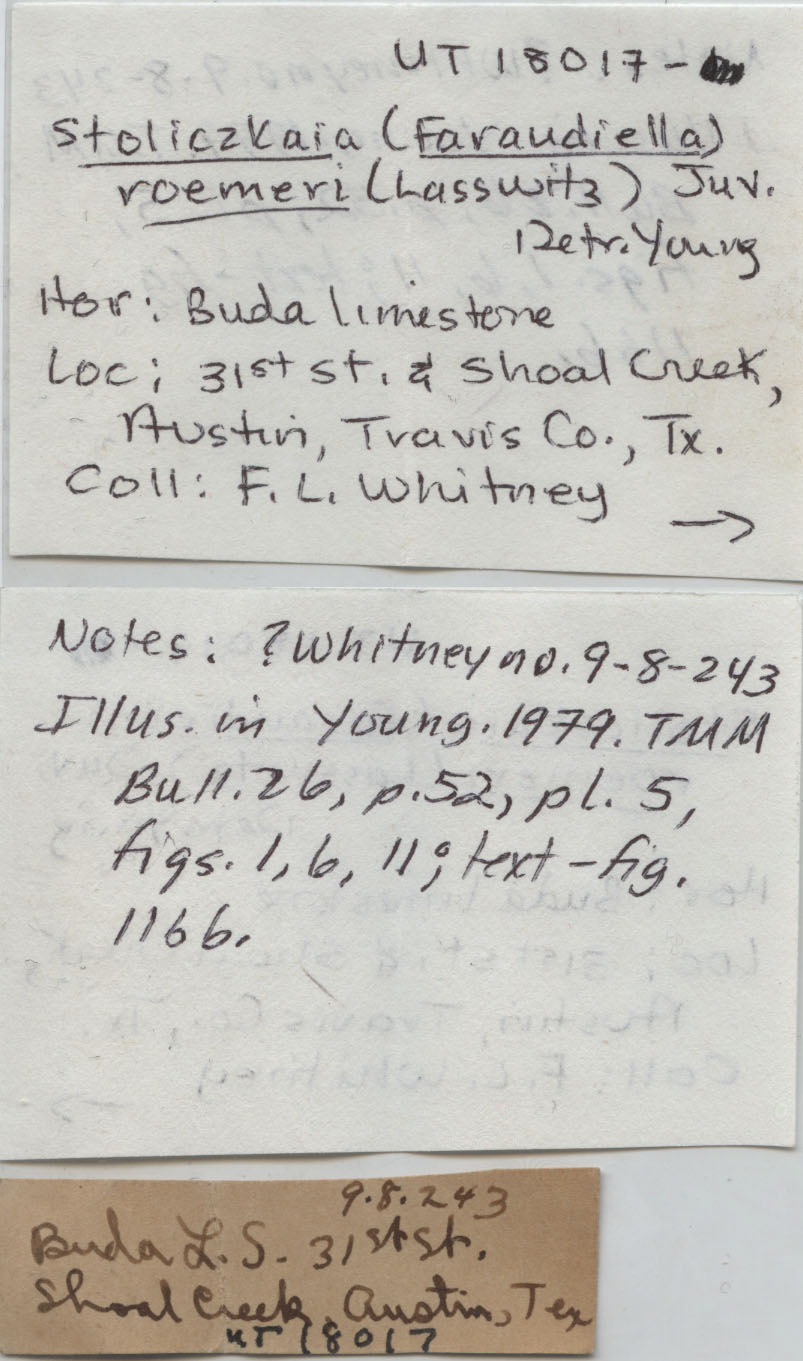 UT 18017-
Stoliczkaia (Faraudiella)
roemeri (Lasswitz) Juv.
Detr. Young
Hor: Buda limestone
Loc: 31st st. & Shoal Creek,
Austin, Travis Co., Tx.
Coll: F. L. Whitney
→
Notes: ?Whitney no. 9-8-243
Illus. in Young. 1979. TMM
Bull. 26, p.52, pl. 5,
figs. 1, 6, 11; text-fig.
116b.
9.8.243
Buda L.S. 31st St.
Shoal Creek, Austin, Tex
UT 18017